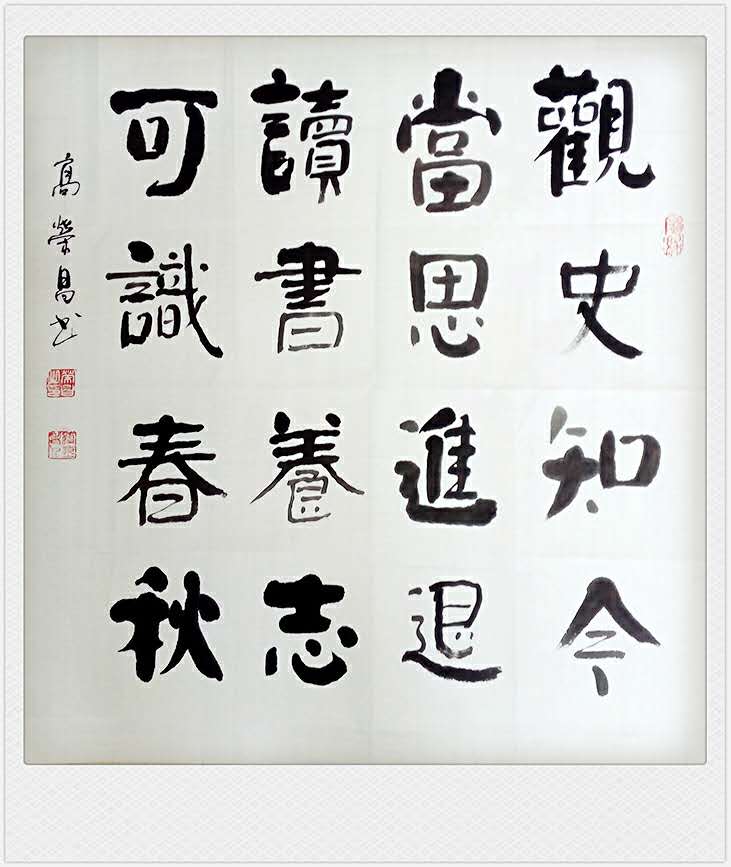 觀史知今
當思進退
讀書養志
可識春秋
高榮昌书